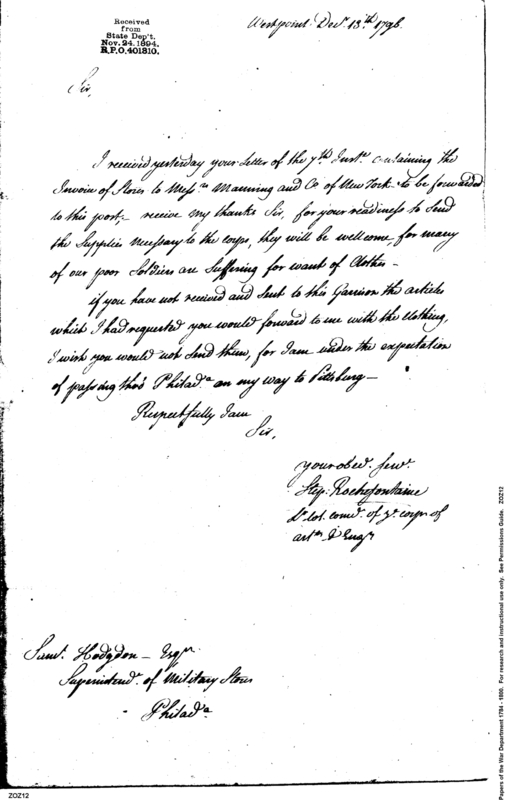 Received
from
State Dep't.
Nov. 24. 1894.
R.P.O. 401810.
Westpoint. Decr. 13th 1796
Sir,
I received yesterday your Letter of the 7th Inste containing the
Invoice of Stores to Messrs Manning and Co of New York to be forwarded
to this post,- receive my thanks Sir, for your readiness to send
the Supplies necessary to the corps, they will be wellcome, for many
of our poor Soldiers are Suffering for want of Clothes-
if you have not received and sent to this Garrison the articles
which I had requested you would forward to me with the clothing,
I wish you would not send them, for I am under the expectation
of passing thro' Philada on my way to Pittsburg-
Respectfully I am
Sir,
your obed. serv.
Step. Rochefontaine
Lt. Col. comd. of ye. corps of
artrs & Engrs
Saml. Hodgdon - Esqr
Superintend. of Military Stores
Philada
ZOZ12
Papers of the War Department 1784 - 1800. For research and instructional use only. See Permissions Guide. ZOZ12